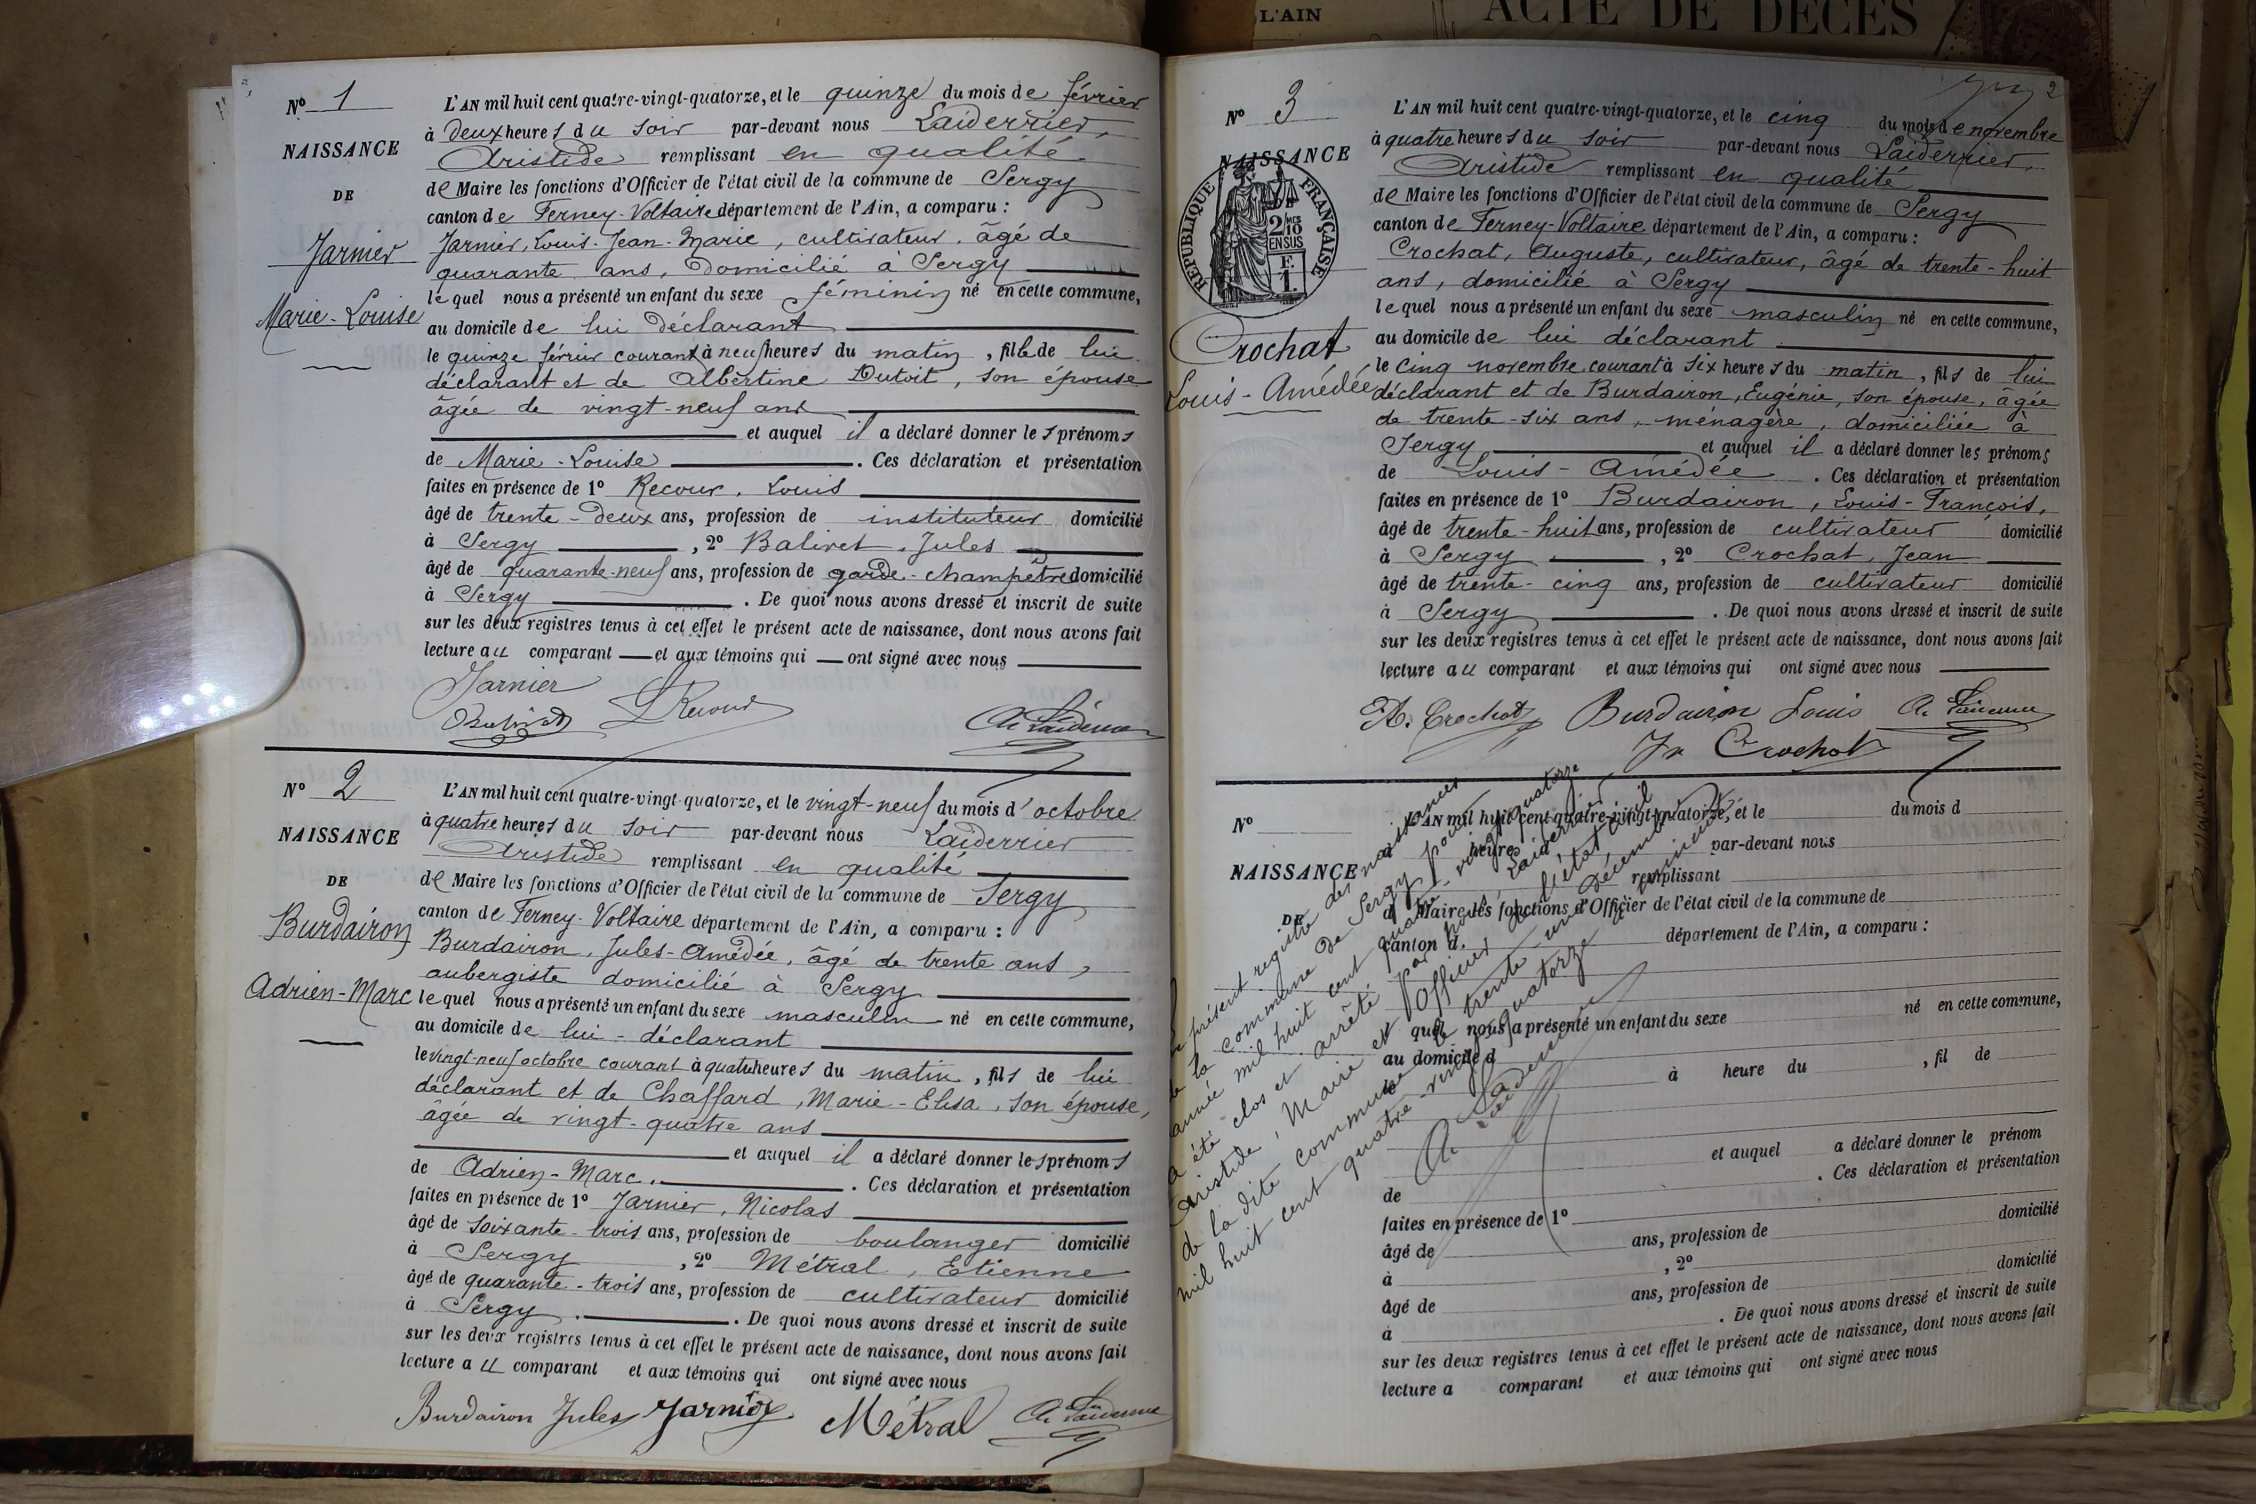 L'AIN
ACTE DE DÉCÈS
Nº 1
NAISSANCE
DE
Jarnier
Marie-Louise
L'AN mil huit cent quatre-vingt-quatorze, et le quinze du mois de février
à deux heures du soir par-devant nous Laiderrier,
Aristide remplissant en qualité
de Maire les fonctions d'Officier de l'état civil de la commune de Sergy
canton de Ferney-Voltaire département de l'Ain, a comparu :
Jarnier, Louis-Jean-Marie, cultivateur, âgé de
quarante ans, domicilié à Sergy
lequel nous a présenté un enfant du sexe féminin né en cette commune,
au domicile de lui déclarant
le quinze février courant à neuf heures du matin, fille de lui
déclarant et de Albertine Dutoit, son épouse
âgée de vingt-neuf ans
et auquel il a déclaré donner les prénoms
de Marie-Louise. Ces déclaration et présentation
faites en présence de 1º Recour, Louis
âgé de trente-deux ans, profession de instituteur domicilié
à Sergy, 2º Balivet, Jules
âgé de quarante-neuf ans, profession de garde-champêtre domicilié
à Sergy. De quoi nous avons dressé et inscrit de suite
sur les deux registres tenus à cet effet le présent acte de naissance, dont nous avons fait
lecture au comparant et aux témoins qui ont signé avec nous
Jarnier
Balivet L Recour A. Laiderrier
Nº 2
NAISSANCE
DE
Burdairon
Adrien-Marc
L'AN mil huit cent quatre-vingt-quatorze, et le vingt-neuf du mois d'octobre
à quatre heures du soir par-devant nous Laiderrier
Aristide remplissant en qualité
de Maire les fonctions d'Officier de l'état civil de la commune de Sergy
canton de Ferney-Voltaire département de l'Ain, a comparu :
Burdairon, Jules-Amédée, âgé de trente ans,
aubergiste domicilié à Sergy
lequel nous a présenté un enfant du sexe masculin né en cette commune,
au domicile de lui-déclarant
le vingt-neuf octobre courant à quatre heures du matin, fils de lui
déclarant et de Chaffard, Marie-Elisa, son épouse,
âgée de vingt-quatre ans
et auquel il a déclaré donner les prénoms
de Adrien-Marc. Ces déclaration et présentation
faites en présence de 1º Jarnier, Nicolas
âgé de soixante-trois ans, profession de boulanger domicilié
à Sergy, 2º Métral, Etienne
âgé de quarante-trois ans, profession de cultivateur domicilié
à Sergy. De quoi nous avons dressé et inscrit de suite
sur les deux registres tenus à cet effet le présent acte de naissance, dont nous avons fait
lecture au comparant et aux témoins qui ont signé avec nous
Burdairon Jules Jarnier Métral A. Laiderrier
2
Nº 3
NAISSANCE
REPUBLIQUE FRANÇAISE
2/10 MES EN SUS
F. 1.
Crochat
Louis-Amédée
L'AN mil huit cent quatre-vingt-quatorze, et le cinq du mois de novembre
à quatre heures du soir par-devant nous Laiderrier,
Aristide remplissant en qualité
de Maire les fonctions d'Officier de l'état civil de la commune de Sergy
canton de Ferney-Voltaire département de l'Ain, a comparu :
Crochat, Auguste, cultivateur, âgé de trente-huit
ans, domicilié à Sergy
lequel nous a présenté un enfant du sexe masculin né en cette commune,
au domicile de lui déclarant
le cinq novembre courant à six heures du matin, fils de lui
déclarant et de Burdairon, Eugénie, son épouse, âgée
de trente-six ans, ménagère, domiciliée à
Sergy et auquel il a déclaré donner les prénoms
de Louis-Amédée. Ces déclaration et présentation
faites en présence de 1º Burdairon, Louis-François,
âgé de trente-huit ans, profession de cultivateur domicilié
à Sergy, 2º Crochat, Jean
âgé de trente-cinq ans, profession de cultivateur domicilié
à Sergy. De quoi nous avons dressé et inscrit de suite
sur les deux registres tenus à cet effet le présent acte de naissance, dont nous avons fait
lecture au comparant et aux témoins qui ont signé avec nous
A. Crochat Burdairon Louis A. Laiderrier
Jn Crochat
Nº
NAISSANCE
DE
L'AN mil huit cent quatre-vingt-quatorze, et le du mois d
à heure par-devant nous
remplissant
d Maire les fonctions d'Officier de l'état civil de la commune de
canton d département de l'Ain, a comparu :
quel nous a présenté un enfant du sexe né en cette commune,
au domicile d
le à heure du, fil de
et auquel a déclaré donner le prénom
de. Ces déclaration et présentation
faites en présence de 1º
âgé de ans, profession de domicilié
à, 2º
âgé de ans, profession de domicilié
à. De quoi nous avons dressé et inscrit de suite
sur les deux registres tenus à cet effet le présent acte de naissance, dont nous avons fait
lecture a comparant et aux témoins qui ont signé avec nous
présent registre des naissances
de la commune de Sergy pour
année mil huit cent quatre-vingt-quatorze
a été clos et arrêté par nous, Laiderrier
Aristide, Maire et Officier de l'état civil
de la dite commune le trente-un Décembre
mil huit cent quatre-vingt-quatorze à minuit
A. Laiderrier